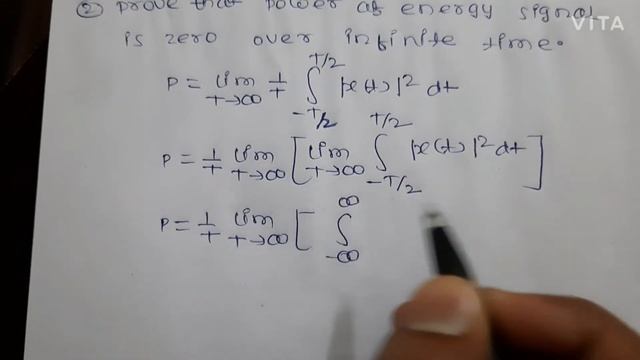 ② prove that power of energy signal
is zero over infinite time.
P = lim T→∞ 1/T ∫ -T/2 T/2 |x(t)|² dt
P = 1/T lim T→∞ [ lim T→∞ ∫ -T/2 T/2 |x(t)|² dt ]
P = 1/T lim T→∞ [ ∫ -∞ ∞
VITA